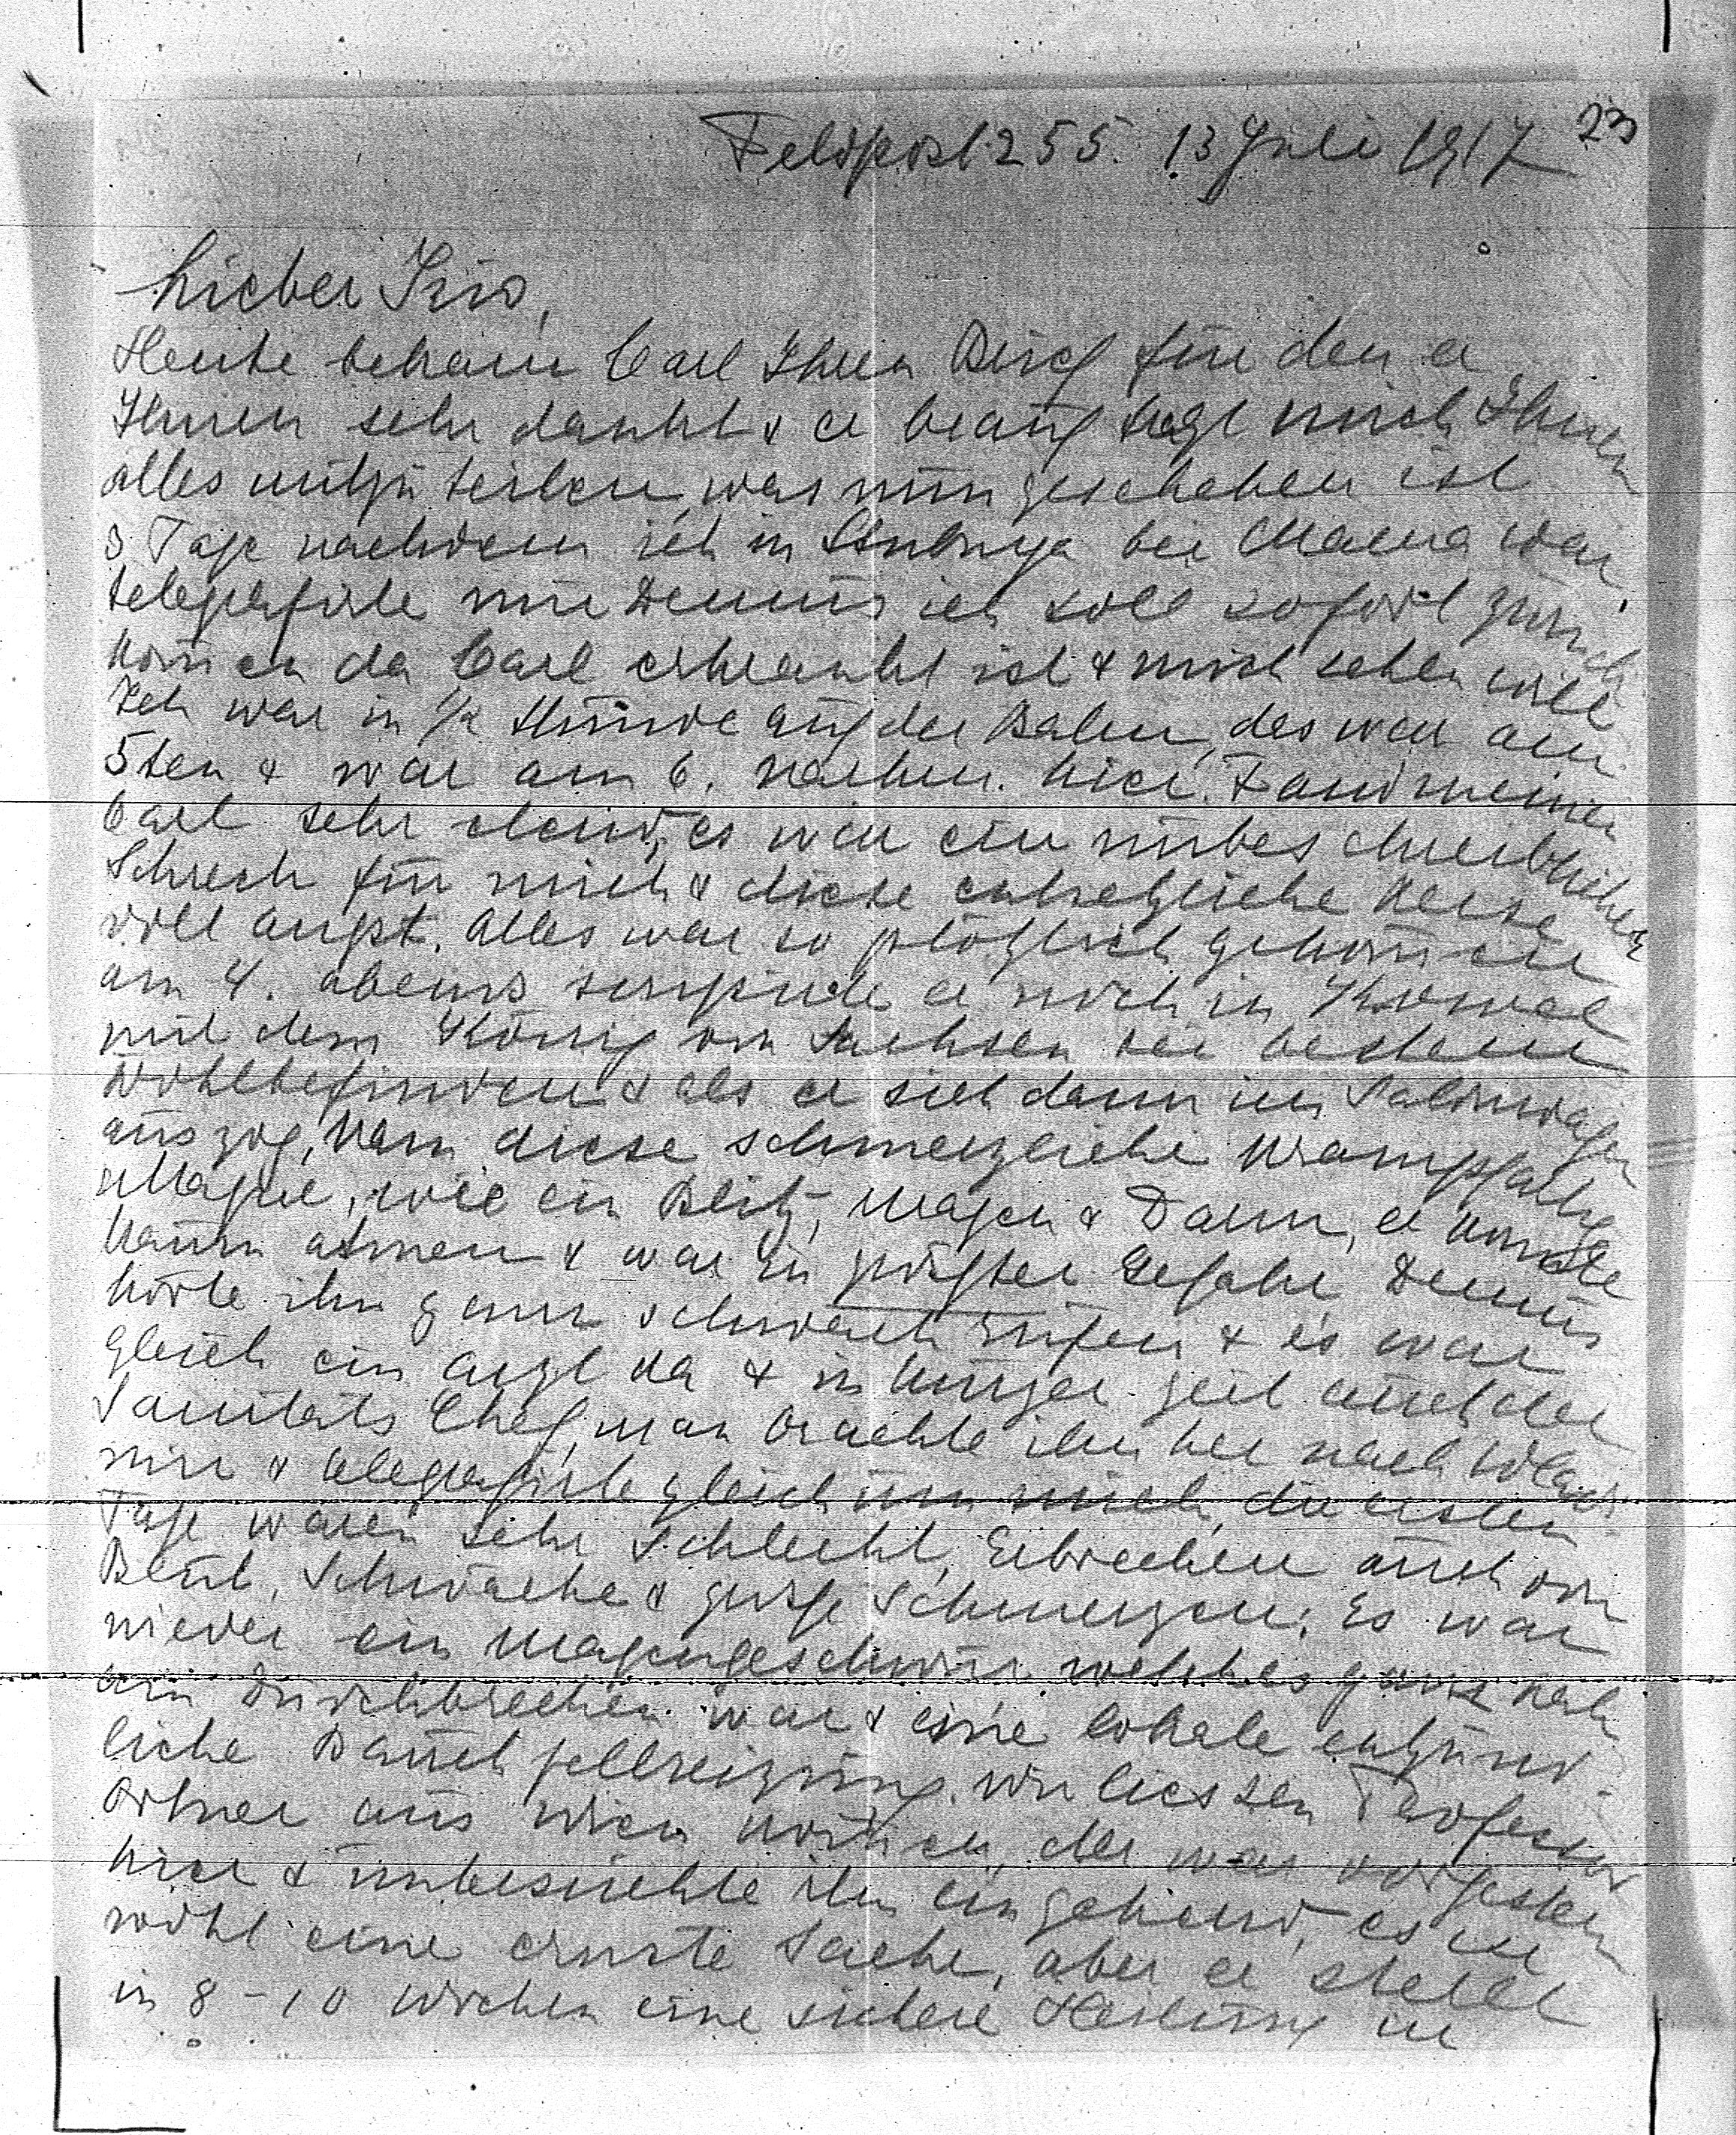 Feldpost 255. 13 Juli 1917 23
Lieber
Heute bekam Carl Ihren Brief für den er
Ihnen sehr dankt & er beauftragt mich Ihnen
alles mitzuteilen, was nun geschehen ist
3 Tage nachdem ich in bei Mama war,
telegrafirte mir ich soll sofort zurück
kom̄en da Carl erkrankt ist & mich sehen will
Ich war in 1/2 Stunde auf der Bahn, das war am
5ten & war am 6. nachm. hier. Fand meinen
Carl sehr elend, es war ein unbeschreiblicher
Schreck für mich & diese entsetzliche Reise
voll Angst. Alles war so plötzlich gekom̄en
am 4. abends soupirte er noch in Kowel
mit dem König von Sachsen bei bestem
Wohlbefinden & als er sich dann im Salonwagen
auszog, kam diese schmerzliche krampfartige
wie ein Blitz, Magen & Darm, er konnte
kaum atmen & war in größter Gefahr
hörte ihn ganz schwach rufen & es war
gleich ein Arzt da & in kurzer Zeit auch der
Sanitäts Chef, man brachte ihn her nach Wladi-
mir & telegrafirte gleich um mich, die ersten
Tage waren sehr schlecht, Erbrechen auch von
Blut, Schwäche & große Schmerzen. Es war
wieder ein Magengeschwür welches ganz nah
am Durchbrechen war & eine lokale entzünd-
liche Bauchfellreizung. Wir liessen Professor
Ortner aus Wien kom̄en, der war vorgestern
hier & untersuchte ihn eingehend, es ist
wohl eine ernste Sache, aber er stellt
in 8 - 10 Wochen eine sichere Heilung in